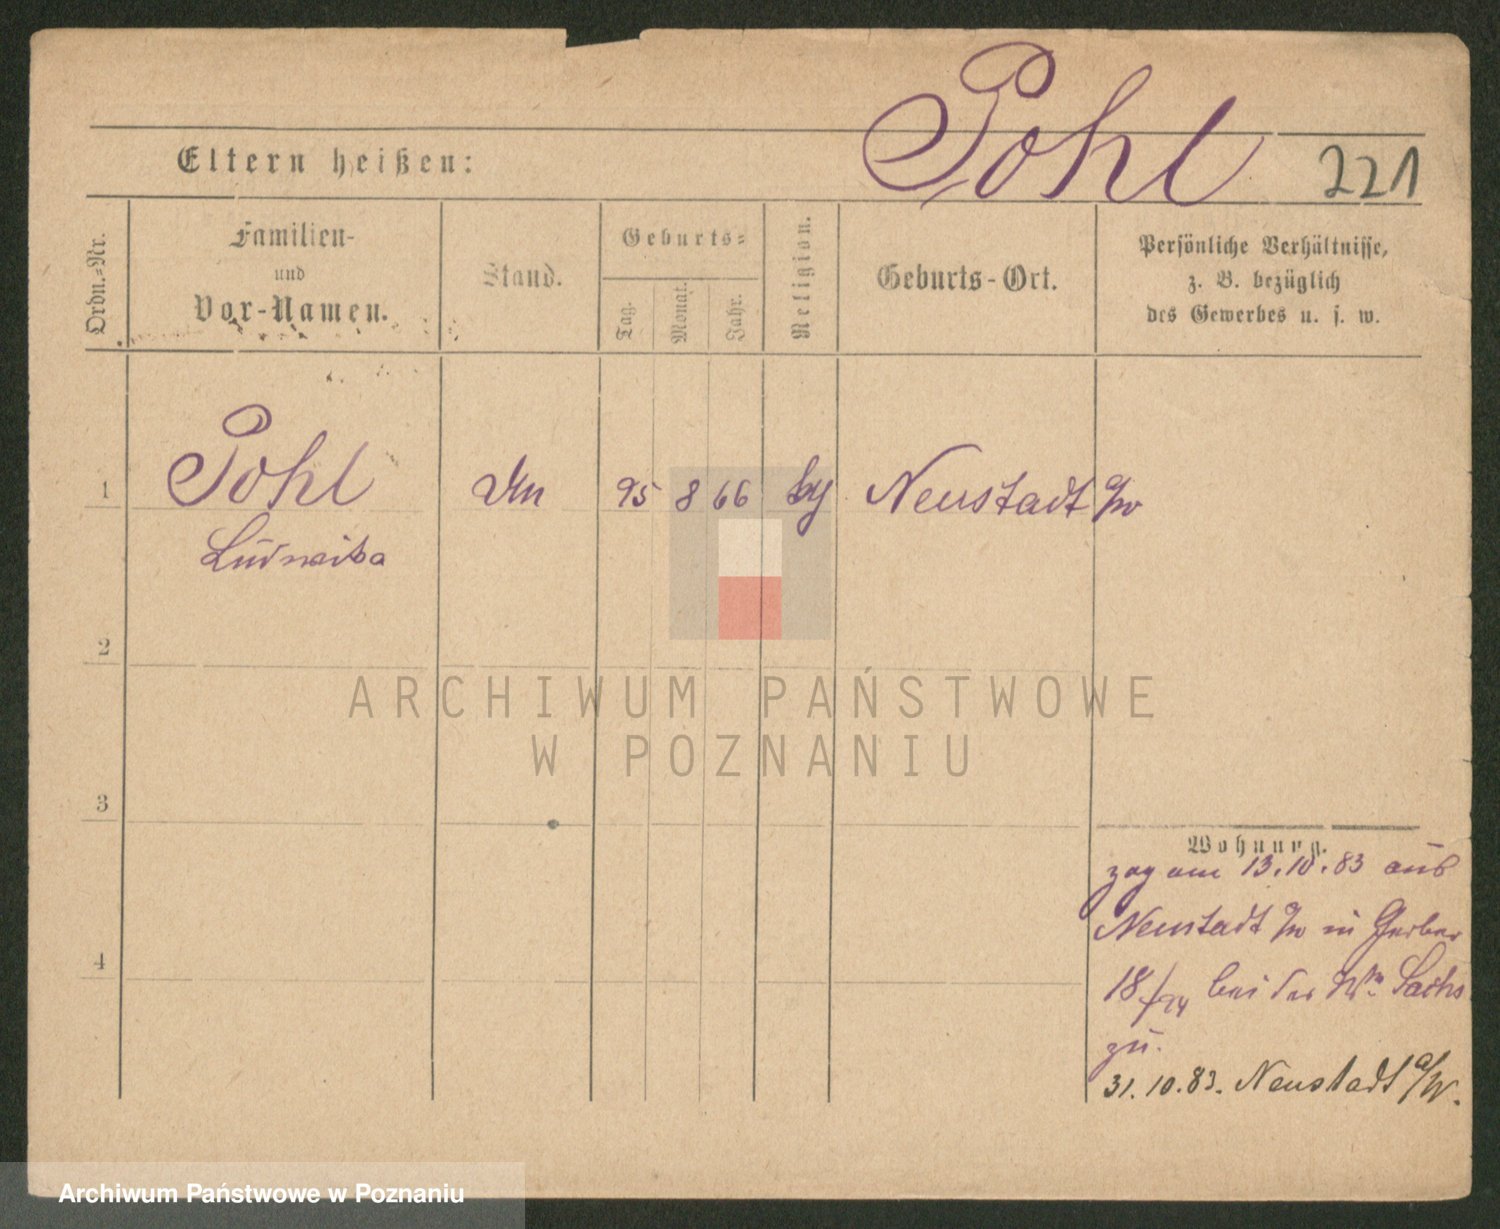 Pohl
221
Eltern heißen:
Ordn.-Nr.
Familien-
und
Vor-Namen.
Stand.
Geburts-
Tag.
Monat.
Jahr.
Religion.
Geburts-Ort.
Persönliche Verhältnisse,
z. B. bezüglich
des Gewerbes u. s. w.
1
Pohl
Ludwika
8 66
Neustadt a/W
2
ARCHIWUM PAŃSTWOWE
W POZNANIU
3
Wohnung.
zog am 13.10.83 aus
Neustadt a/W in Gerber
18/24 bei der Ww Sachs
zu.
4
31.10.83. Neustadt a/W.
Archiwum Państwowe w Poznaniu